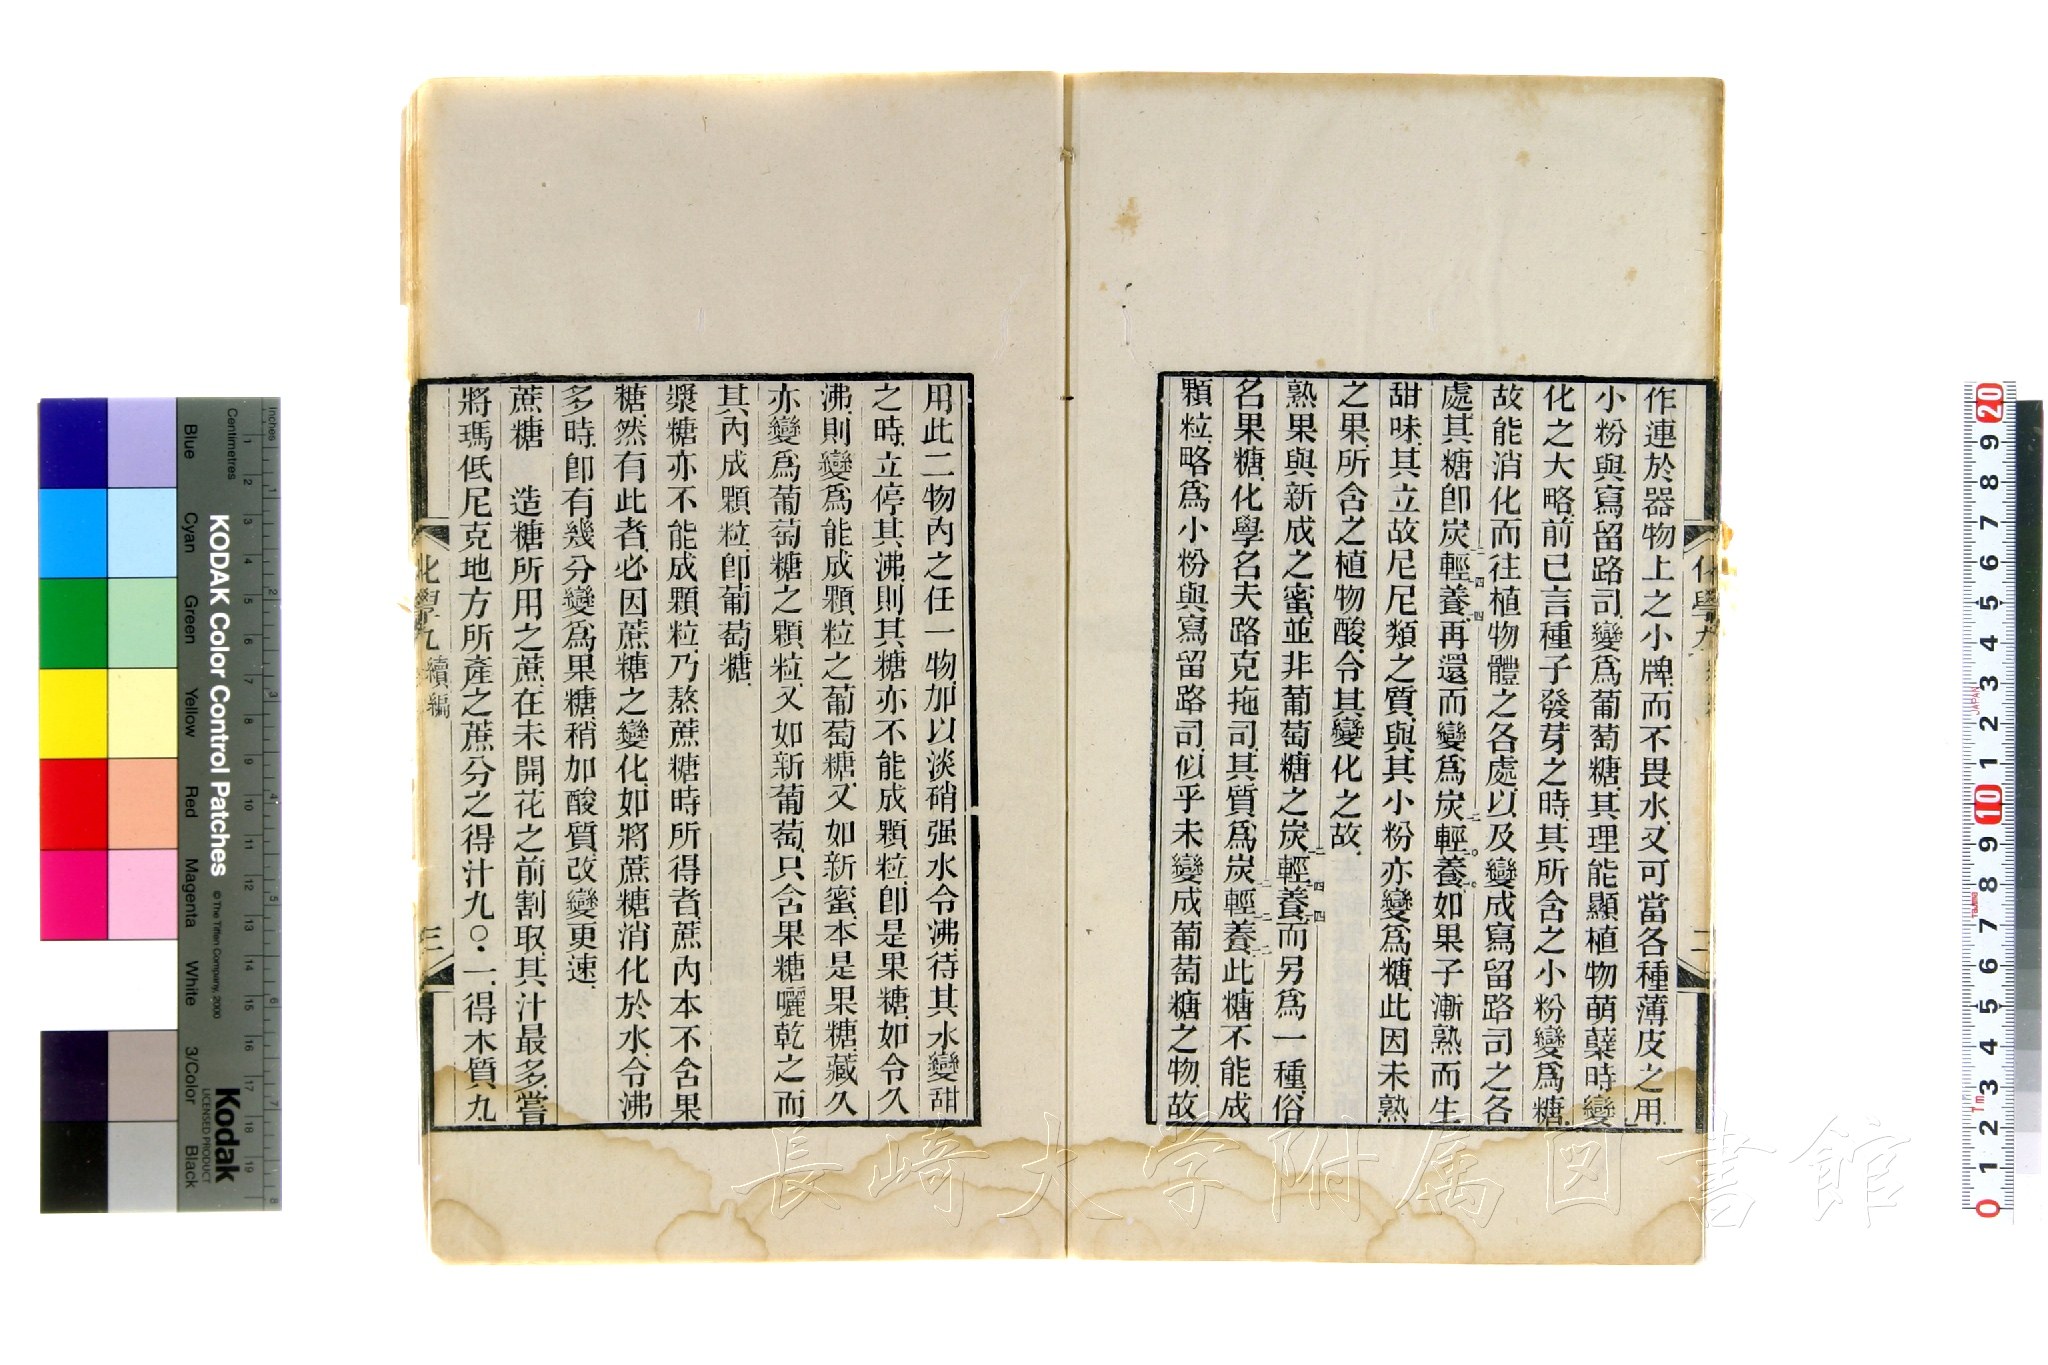 作連於器物上之小牌而不畏水又可當各種薄皮之用
小粉與寫留路司變爲葡萄糖其理能顯植物萌櫱時變
化之大略前已言種子發芽之時其所含之小粉變爲糖
故能消化而往植物體之各處以及變成寫留路司之各
處其糖卽炭二輕四養四再還而變爲炭二輕〇養〇如果子漸熟而生
甜味其立故尼尼類之質與其小粉亦變爲糖此因未熟
之果所含之植物酸令其變化之故
熟果與新成之蜜並非葡萄糖之炭二輕四養四而另爲一種俗
名果糖化學名夫路克拖司其質爲炭二輕二養二此糖不能成
顆粒略爲小粉與寫留路司似乎未變成葡萄糖之物故
二
用此二物內之任一物加以淡硝强水令沸待其水變甜
之時立停其沸則其糖亦不能成顆粒卽是果糖如令久
沸則變爲能成顆粒之葡萄糖又如新蜜本是果糖藏久
亦變爲葡萄糖之顆粒又如新葡萄只含果糖曬乾之而
其內成顆粒卽葡萄糖
漿糖亦不能成顆粒乃熬蔗糖時所得者蔗內本不含果
糖然有此者必因蔗糖之變化如將蔗糖消化於水令沸
多時卽有幾分變爲果糖稍加酸質改變更速
蔗糖　造糖所用之蔗在未開花之前割取其汁最多嘗
將瑪低尼克地方所產之蔗分之得汁九〇·一得木質九
化學九 續編 三
長崎大学附属図書館
KODAK Color Control Patches
© The Tiffen Company, 2000
Kodak
LICENSED PRODUCT
Inches
Centimetres
Blue
Cyan
Green
Yellow
Red
Magenta
White
3/Color
Black
JAPAN
Tajima